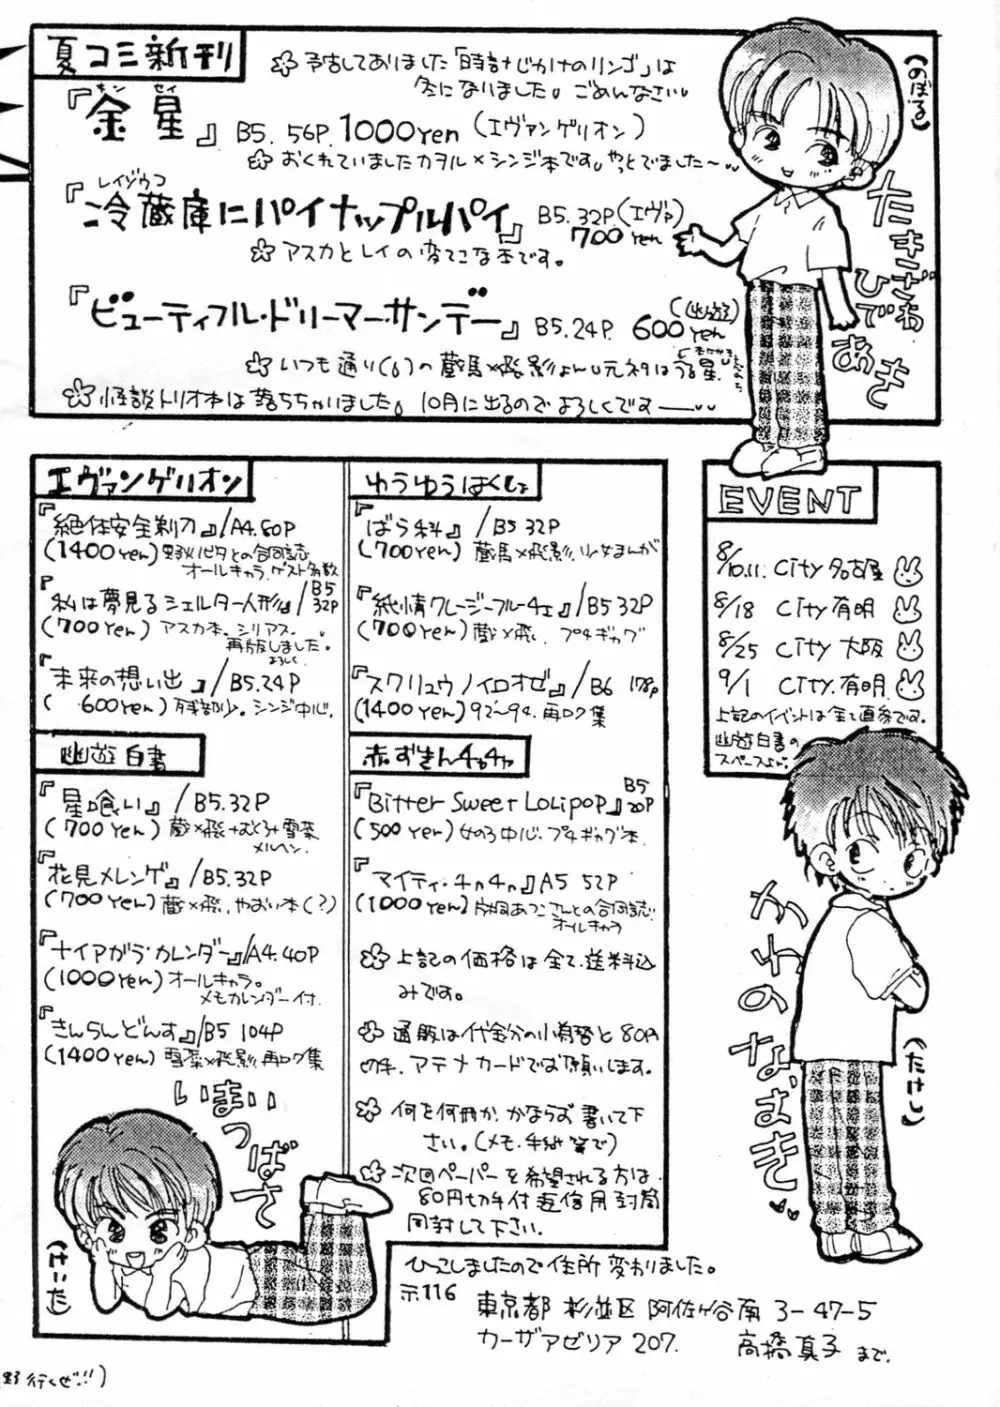 夏コミ新刊
☆予告してありました「時計じかけのリンゴ」は
冬になりました。ごめんなさい。
キン セイ
『金星』B5. 56P. 1000yen (エヴァンゲリオン)
☆おくれていましたカヲル×シンジ本です。やっとでました〜
レイゾウコ
『冷蔵庫にパイナップルパイ』B5. 32P. (エヴァ)
700yen
☆アスカとレイの変てこな本です。
『ビューティフル・ドリーマー・サンデー』B5. 24P. 600yen
(幽遊)
☆いつも通り(?)の蔵馬×飛影よん。元ネタはうる星
☆怪談トリオ本は落ちちゃいました。10月に出るのでよろしくですー
(のぼる)
たきざわ
ひであき
エヴァンゲリオン
『絶体安全剃刀』/A4. 60P
(1400yen) との合同誌
オールキャラ. ゲスト多数
『私は夢見るシェルター人形』/B5 32P
(700yen) アスカ本. シリアス.
再版しました。
よろしく
『未来の想い出』/B5. 24P
(600yen) 残部少。シンジ中心.
幽遊白書
『星喰い』/B5. 32P
(700yen) 蔵×飛+むくろ+雪菜
メルヘン.
『花見メレンゲ』/B5. 32P
(700yen) 蔵×飛. やおい本(?)
『ナイアガラ・カレンダー』/A4. 40P
(1000yen) オールキャラ。
メモカレンダー付.
『きんらんどんす』/B5 104P
(1400yen) 雪菜×飛影. 再ログ集
いまい
つばさ
(けいた)
ゆうゆうはくしょ
『ばら科』/B5 32P
(700yen) 蔵馬×飛影. 少女まんが
『純情クレージーフルーチェ』/B5 32P
(700yen) 蔵×飛. プチギャグ
『スクリュウノイロオゼ』/B6 178p
(1400yen) 92〜94. 再ログ集
赤ずきんチャチャ
『Bitter Sweet Lolipop』B5 20P
(500yen) 女の子中心. プチギャグ本.
『マイティ・4n4n』A5 52P
(1000yen) 片岡あつこさんとの合同誌.
オールキャラ
☆上記の価格は全て、送料込
みです。
☆通販は代金分の小為替と80円
切手、アテナカードでお願いします。
☆何を何冊か、かならず書いて下
さい。(メモ・手紙等で)
☆次回ペーパーを希望される方は、
80円切手付返信用封筒
同封して下さい.
EVENT
8/10.11. City 名古屋
8/18 City 有明
8/25 City 大阪
9/1 City. 有明.
上記のイベントは全て直参です。
幽遊白書の
スペースよん。
かわの
なおき
(たけし)
ひっこしましたので住所変わりました。
〒116
東京都 杉並区 阿佐ヶ谷南 3-47-5
カーザアゼリア 207. 高橋真子 まで.
行くぜ!!)